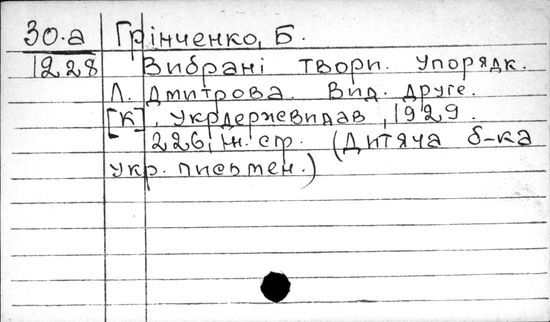 30.а Грінченко, Б.
1228 Вибрані твори. Упорядк.
Л. Дмитрова. Вид. друге.
[К], Укрдержвидав, 1929.
226, ін. стр. (Дитяча б-ка
укр. письмен.)